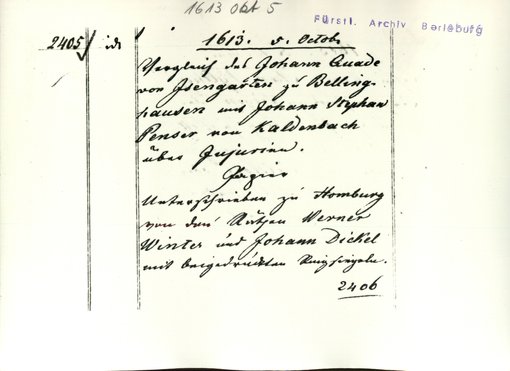 1613 Okt 5
Fürstl. Archiv Berleburg
2405 id. 1613. 5. Octob.
Vergleich des Johann Quade
von Isengarten zu Belling-
hausen mit Johann Stephan
Penser von Kaldenbach
über Injurien.
Papier
Unterschrieben zu Homburg
von den Räthen Werner
Winter und Johann Dickel
mit beigedrückten Ringsiegeln.
2406